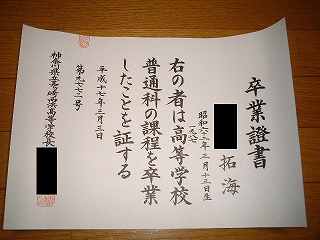 卒業證書
拓海
昭和六二年二月十三日生
右の者は高等学校
普通科の課程を卒業
したことを証する
平成十七年三月三日
第九七二号
神奈川県立
高等学校長